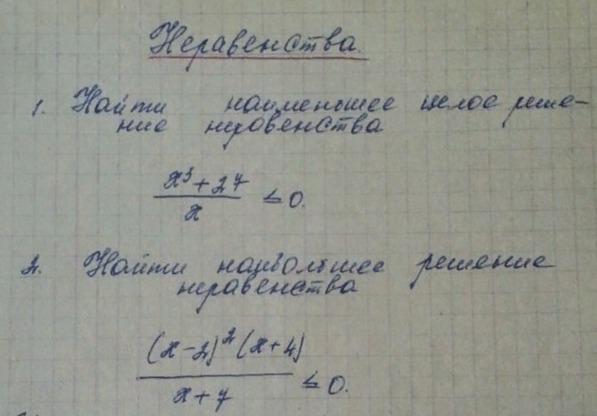 Неравенства.
1. Найти наименьшее целое реше-
ние неравенства
x³ + 27
x
≤ 0.
2. Найти наибольшее решение
неравенства
(x-2)²(x+4)
x+7
≤ 0.